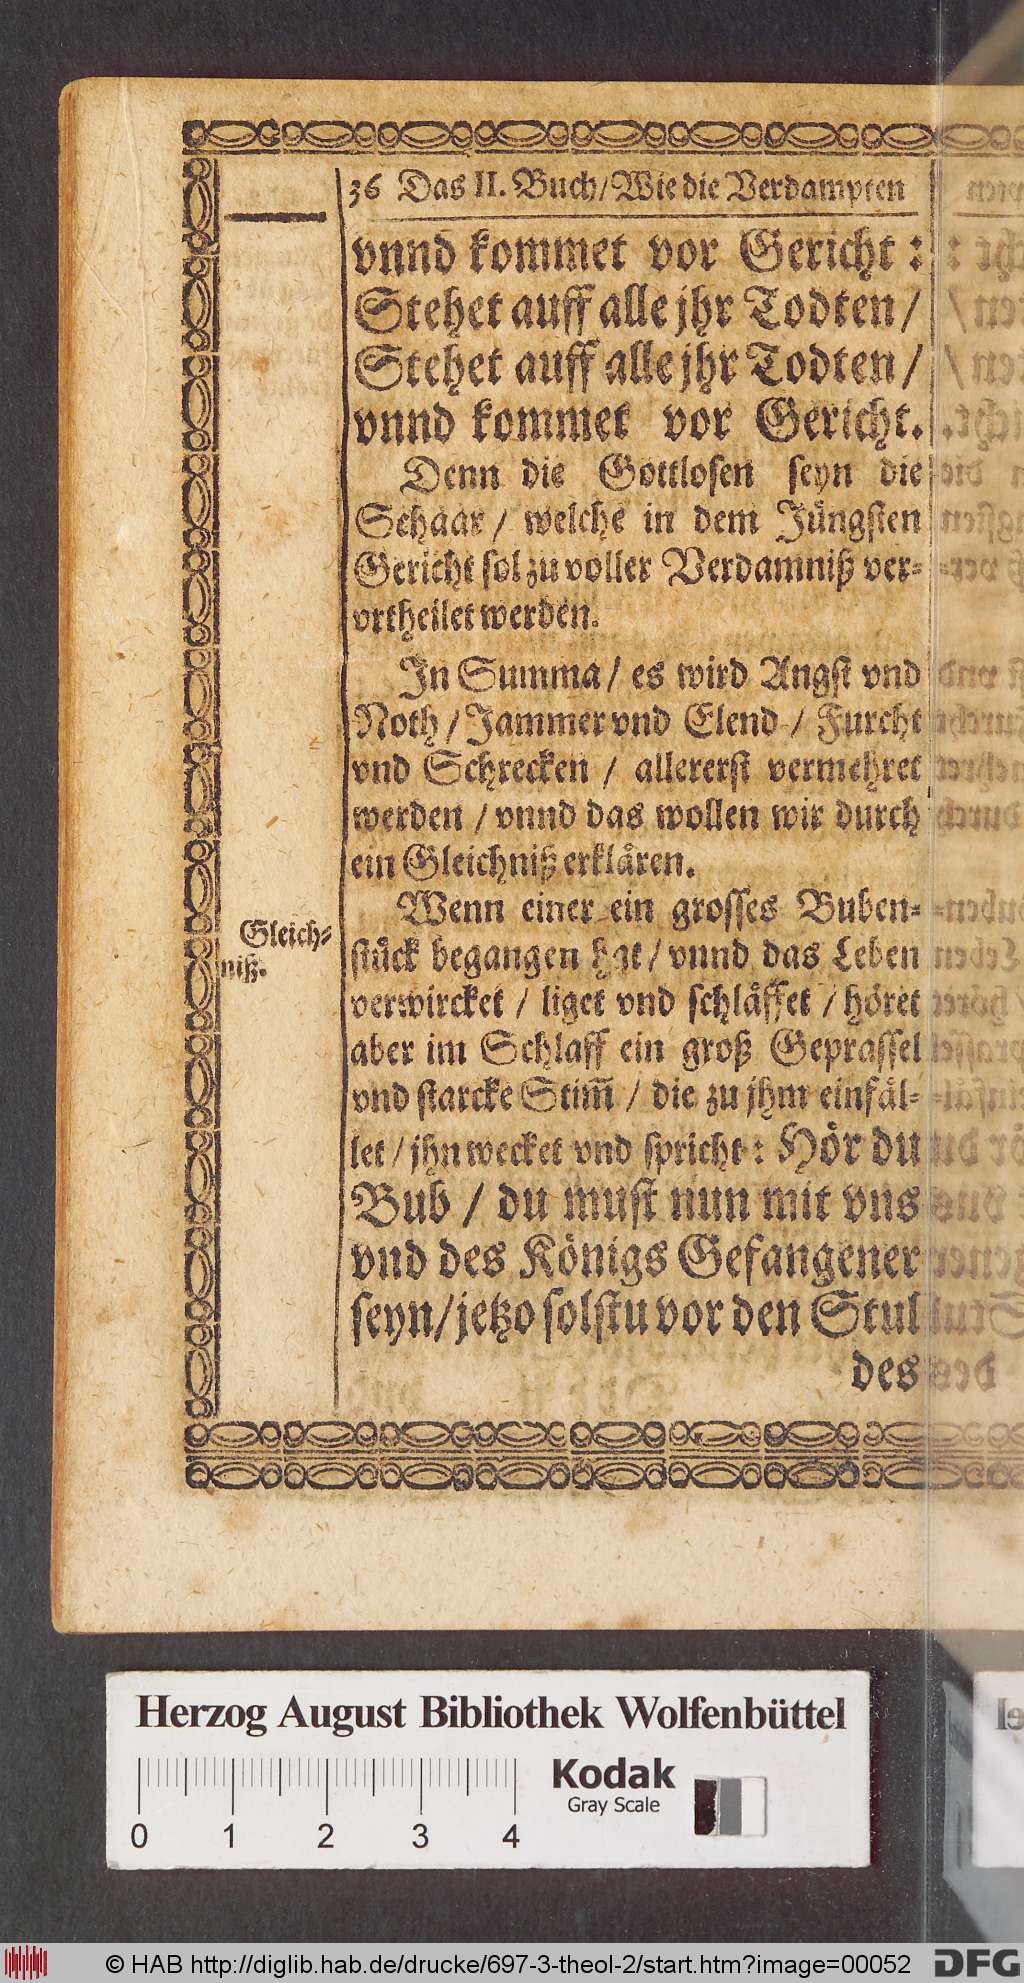 36 Das II. Buch/Wie die Verdampten
vnnd kommet vor Gericht:
Stehet auff alle jhr Todten/
Stehet auff alle jhr Todten/
vnnd kommet vor Gericht.
Denn die Gottlosen seyn die
Schaar/ welche in dem Jüngsten
Gericht sol zu voller Verdamniß ver-
vrtheilet werden.
In Summa/ es wird Angst vnd
Noth/ Jammer vnd Elend/ Furcht
vnd Schrecken/ allererst vermehret
werden/ vnnd das wollen wir durch
ein Gleichniß erklären.
Gleich-
niß.
Wenn einer ein grosses Buben-
stück begangen hat/ vnnd das Leben
verwircket/ liget vnd schläffet/ höret
aber im Schlaff ein groß Geprassel
vnd starcke Stim̃/ die zu jhm einfäl-
let/ jhn wecket vnd spricht: Hör du
Bub/ du must nun mit vns
vnd des Königs Gefangener
seyn/ jetzo solstu vor den Stul
des
Herzog August Bibliothek Wolfenbüttel
Kodak
Gray Scale
0 1 2 3 4
© HAB http://diglib.hab.de/drucke/697-3-theol-2/start.htm?image=00052
DFG